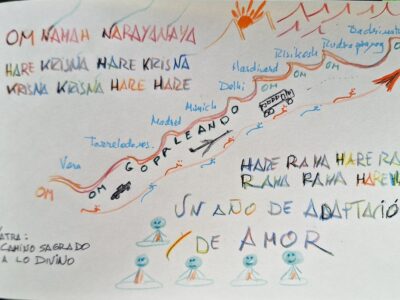 OM NAMAH NARAYANAYA
HARE KRISNA HARE KRISNA
KRISNA KRISNA HARE HARE
Badrinat
Rudraprayag
Risikesh
Hardiward
Delhi
Munich
Madrid
Torrelodones
Vera
OM
OM
OM
OM
OM
GOPALEANDO
HARE RAMA HARE RA
RAMA RAMA HARE
UN AÑO DE ADAPTACIÓ
DE AMOR
ATRA:
CAMINO SAGRADO
A LO DIVINO